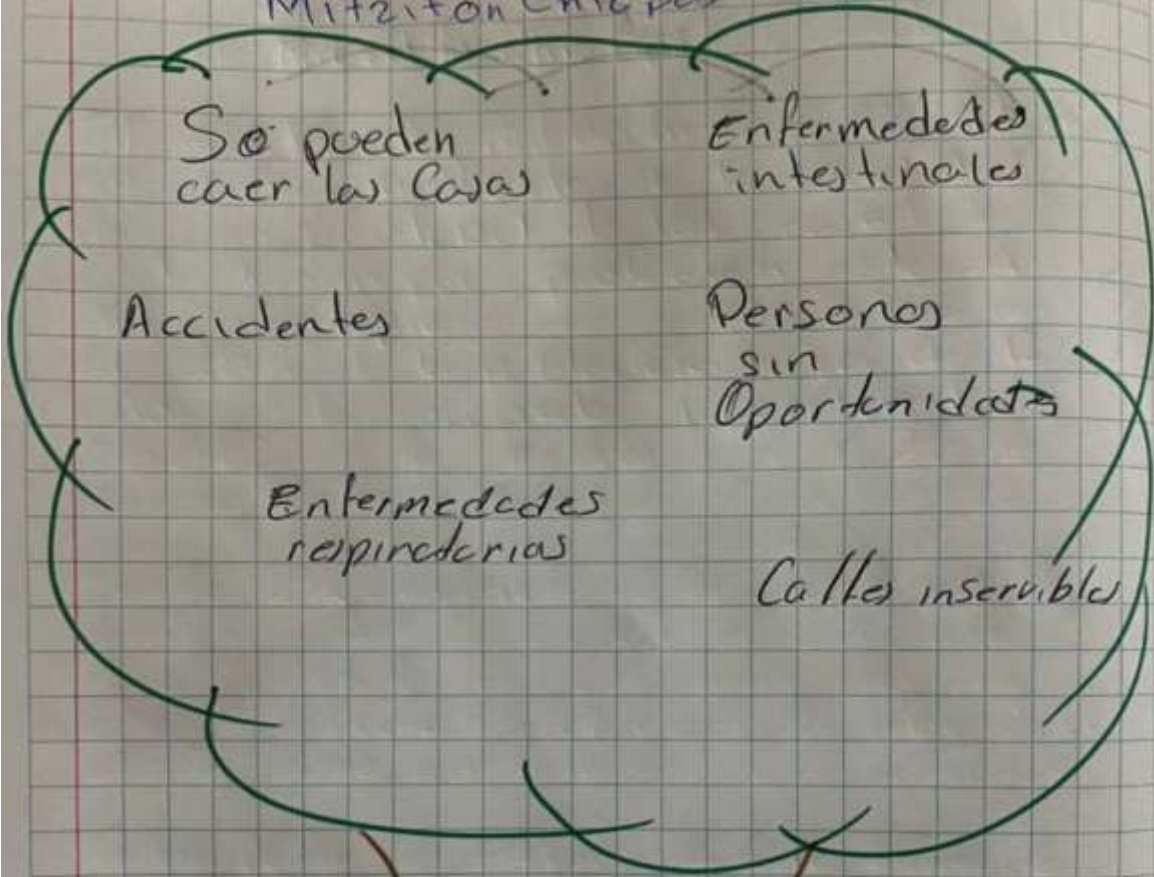 Mitziton Chiapas
Se pueden
caer las Casas
Enfermededes
intestinales
Accidentes
Personas
sin
Oportunidades
Enfermedades
respiratorias
Calles inservibles